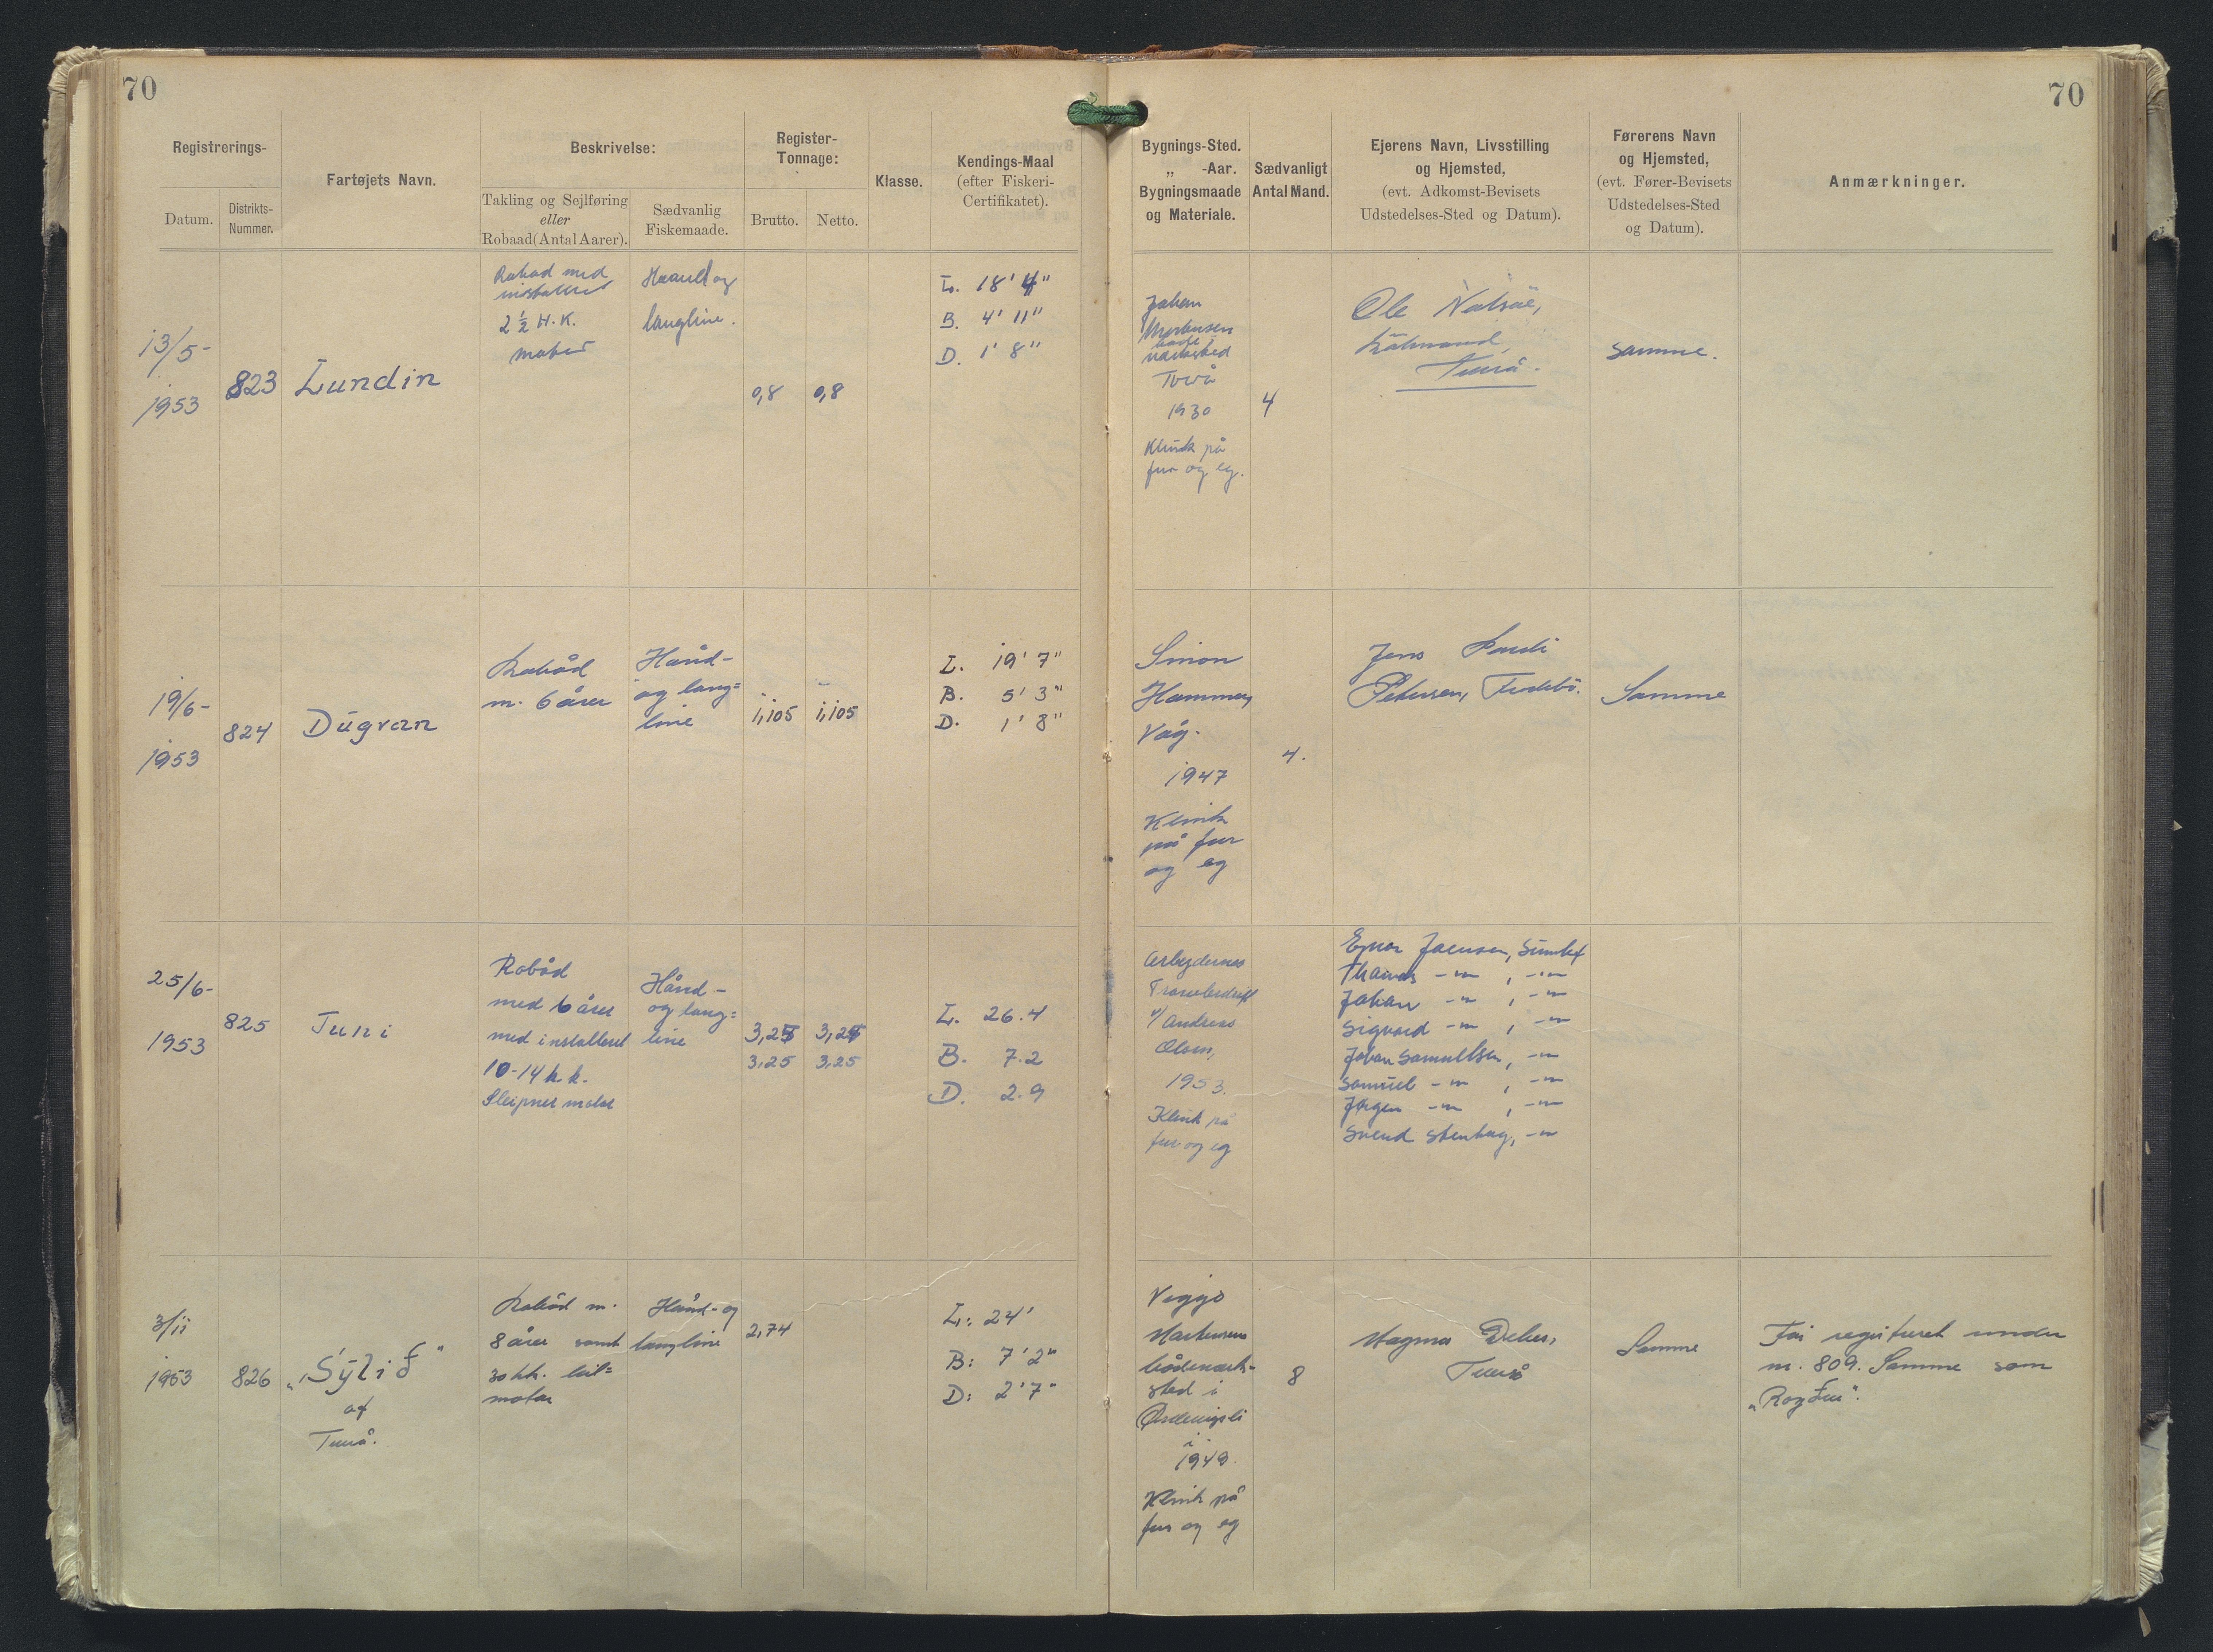 70
70
Registrerings-
Datum.
Distrikts-
Nummer.
Fartøjets Navn.
Beskrivelse:
Takling og Sejlføring
eller
Robaad (Antal Aarer).
Sædvanlig
Fiskemaade.
Register-
Tonnage:
Brutto.
Netto.
Klasse.
Kendings-Maal
(efter Fiskeri-
Certifikatet).
Bygnings-Sted.
„ -Aar.
Bygningsmaade
og Materiale.
Sædvanligt
Antal Mand.
Ejerens Navn, Livsstilling
og Hjemsted,
(evt. Adkomst-Bevisets
Udstedelses-Sted og Datum).
Førerens Navn
og Hjemsted,
(evt. Fører-Bevisets
Udstedelses-Sted
og Datum).
Anmærkninger.
13/5-
1953
823
Lundin
Robåd med
installeret
2½ H.K.
motor
Haand og
langline.
0,8
0,8
L. 18' 4"
B. 4' 11"
D. 1' 8"
Johan
Mortensen
Tvrå
1930
Klink på
fur og eg.
4
Ole
samme.
19/6-
1953
824
Dúgvan
Robåd
m. 6 årer
Hånd-
og lang=
line
1,105
1,105
L. 19' 7"
B. 5' 3"
D. 1' 8"
Simon
Hammer,
Våg.
1947
Klink
på fur
og eg
4.
Jens Pauli
Petersen,
Samme
25/6-
1953
825
Juni
Robåd
med 6 årer
med installeret
10-14 h.k.
Sleipner motor
Hånd-
og lang=
line
3,25
3,25
3,25
3,25
L. 26.4
B. 7.2
D. 2.9
v/ Andreas
Olsen,
1953.
Klink på
fur og eg
Ejnar Joensen, Sumbø
Thomas -"- , -"-
Johan -"- , -"-
Sigvard -"- , -"-
Johan Samuelsen, -"-
Samuel -"- , -"-
Jørgen -"- , -"-
Svend Stenberg, -"-
3/11
1953
826
„Sýlið"
af
Tvrå.
Robåd m.
8 årer samt
30 hk. bil=
motor
Hånd- og
langline
2,74
L: 24'
B: 7' 2"
D: 2' 7"
Viggo
Mortensens
bådeværk-
sted i
i
1949.
Klink på
fur og eg
8
Magnus
Tvrå
Samme
Før registreret under
nr. 809. Samme som